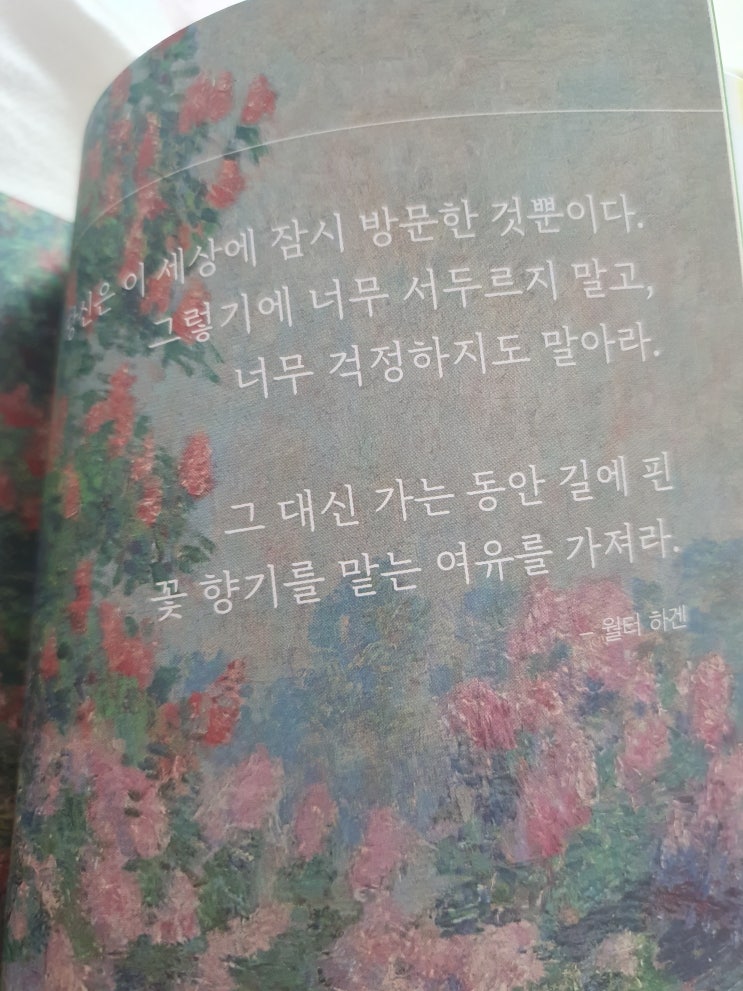 당신은 이 세상에 잠시 방문한 것뿐이다.
그렇기에 너무 서두르지 말고,
너무 걱정하지도 말아라.
그 대신 가는 동안 길에 핀
꽃 향기를 맡는 여유를 가져라.
– 월터 하겐